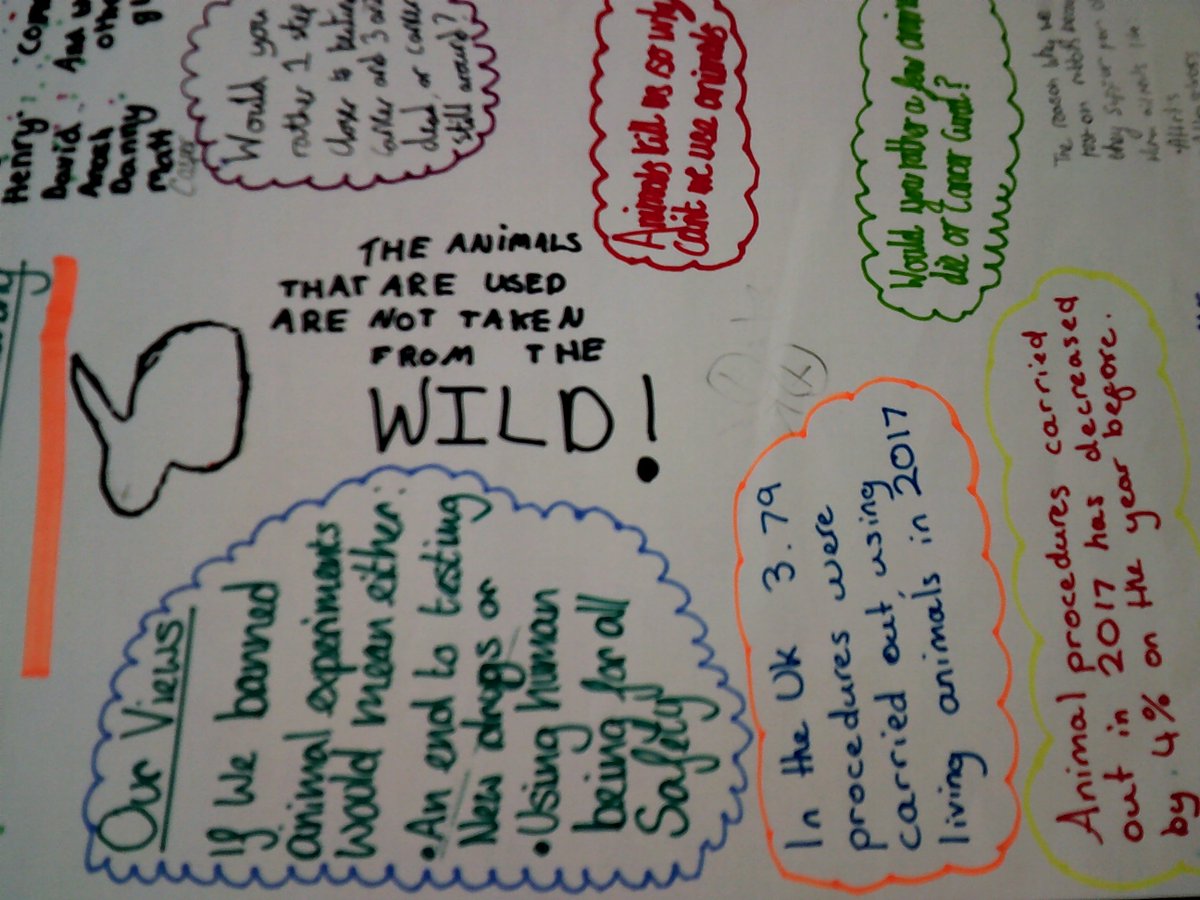 Henry. Com
David. And w
Anash oth
Danny gi
matt
Would you
rather 1 step
closer to beating
cancer and 3 an
dead, or cancer
still around?
Animals kill us so why
can't we use animals
Would you rather a few anim
die or Cancer Cured?
The reason why we
THE ANIMALS
THAT ARE USED
ARE NOT TAKEN
FROM THE
WILD!
Our Views
If we banned
animal experiments
would mean either:
• An end to testing
New drugs or
• Using human
being for all
Safety
In the UK 3.79
procedures were
carried out using
living animals in 2017
Animal procedures carried
out in 2017 has decreased
by 4% on the year before.